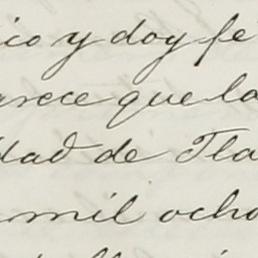 ico y doy fé
arece que la
dad de Tla
mil ocho